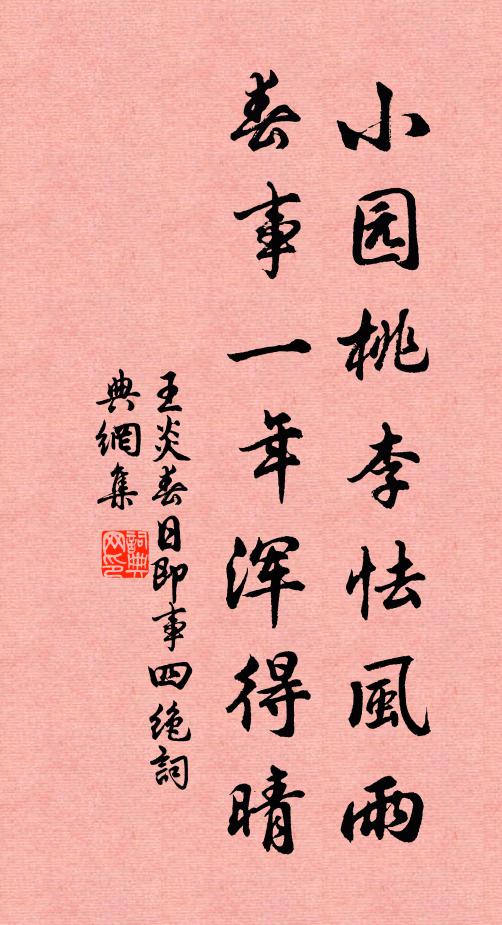 小园桃李怯風雨
春事一年浑得晴
王炎春日即事四绝詞
典網集
詞典網印